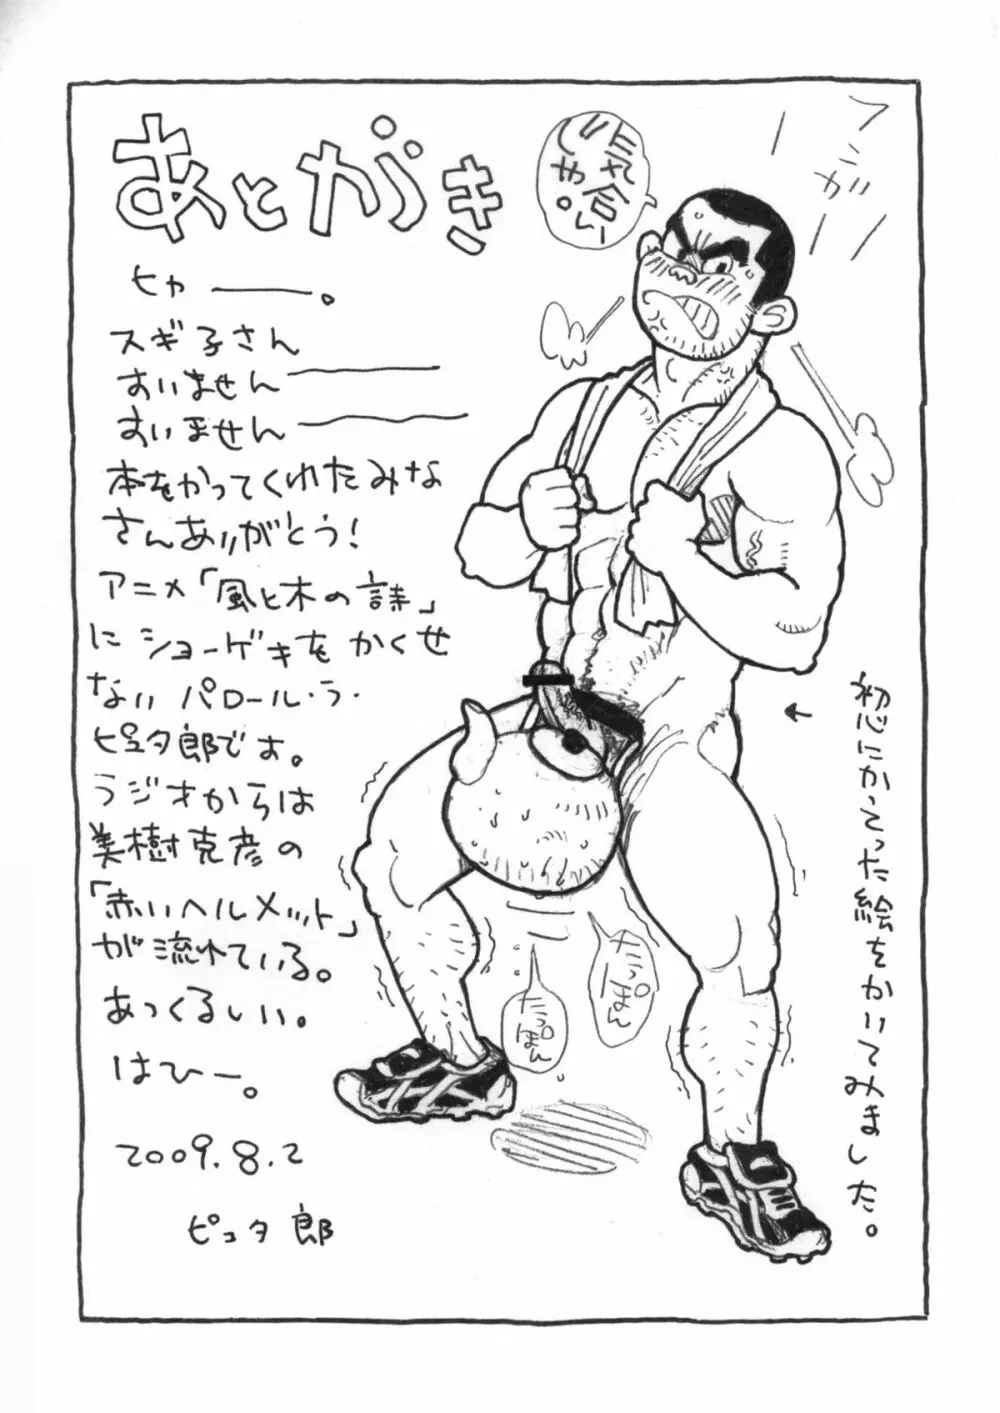 あとがき
ヒャ――。
スギ子さん
すいません――
すいません――
本をかってくれたみな
さんありがとう!
アニメ「風と木の詩」
にショーゲキをかくせ
ないパロール・ラ・
ピュタ郎です。
ラジオからは
美樹克彦の
「赤いヘルメット」
が流れている。
あっくるしい。
はひー。
2009.8.2
ピュタ郎
気合い
じゃ。
フンガー
←初心にかえった絵をかいてみました。
たっぽん
たっぽん